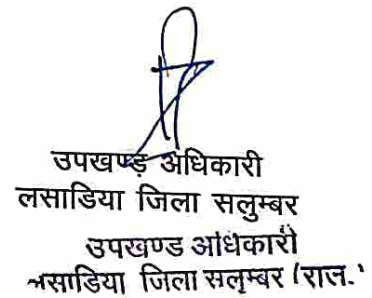 उपखण्ड़ अधिकारी
लसाडिया जिला सलुम्बर
उपखण्ड अधिकारी
लसाडिया जिला सलूम्बर (राज.)